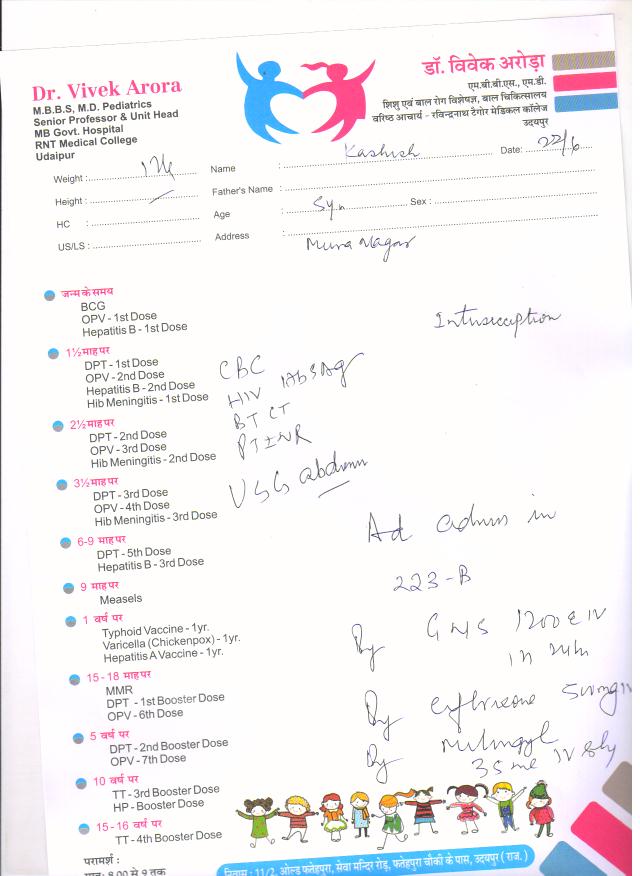 Dr. Vivek Arora
M.B.B.S, M.D. Pediatrics
Senior Professor & Unit Head
MB Govt. Hospital
RNT Medical College
Udaipur
डॉ. विवेक अरोड़ा
एम.बी.बी.एस., एम.डी.
शिशु एवं बाल रोग विशेषज्ञ, बाल चिकित्सालय
वरिष्ठ आचार्य - रविन्द्रनाथ टैगोर मेडिकल कॉलेज
उदयपुर
Weight :
Name : Kashish Date: 22/6
Height :
Father's Name :
HC :
Age : Sex :
US/LS :
Address : Nagar
जन्म के समय
BCG
OPV - 1st Dose
Hepatitis B - 1st Dose
Intussception
1½ माह पर
DPT - 1st Dose
OPV - 2nd Dose
Hepatitis B - 2nd Dose
Hib Meningitis - 1st Dose
CBC
HIV HbSAg
BT CT
PT INR
USG abdomen
2½ माह पर
DPT - 2nd Dose
OPV - 3rd Dose
Hib Meningitis - 2nd Dose
3½ माह पर
DPT - 3rd Dose
OPV - 4th Dose
Hib Meningitis - 3rd Dose
Ad in
223-B
6-9 माह पर
DPT - 5th Dose
Hepatitis B - 3rd Dose
9 माह पर
Measels
1 वर्ष पर
Typhoid Vaccine - 1yr.
Varicella (Chickenpox) - 1yr.
Hepatitis A Vaccine - 1yr.
1200 IV
in
15 - 18 माह पर
MMR
DPT - 1st Booster Dose
OPV - 6th Dose
IV
5 वर्ष पर
DPT - 2nd Booster Dose
OPV - 7th Dose
35 IV
10 वर्ष पर
TT - 3rd Booster Dose
HP - Booster Dose
15 - 16 वर्ष पर
TT - 4th Booster Dose
परामर्श :
8.00 से 9 तक
निवास : 11/2, ओल्ड फतेहपुरा, सेवा मन्दिर रोड़, फतेहपुरा चौकी के पास, उदयपुर ( राज. )